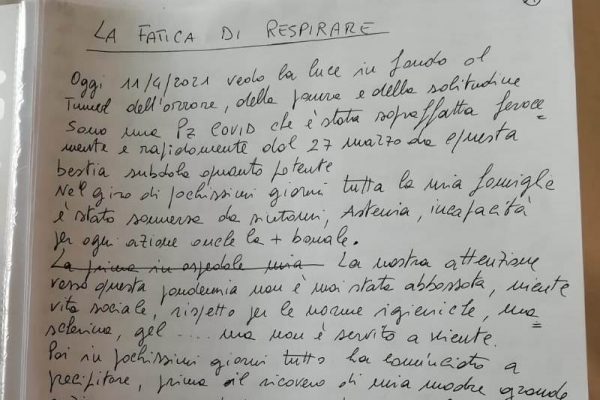 LA FATICA DI RESPIRARE
Oggi 11/4/2021 vedo la luce in fondo al
Tunnel dell'orrore, della paura e della solitudine
Sono una Pz COVID che è stata sopraffatta feroce
mente e rapidamente dal 27 marzo da questa
bestia subdola quanto potente
Nel giro di pochissimi giorni tutta la mia famiglia
è stata sommersa da sintomi, Astenia, incapacità
per ogni azione anche la + banale.
La prima in ospedale mia La nostra attenzione
verso questa pandemia non è mai stata abbassata, niente
vita sociale, rispetto per le norme igieniche, ma=
scherina, gel .... ma non è servito a niente.
Poi in pochissimi giorni tutto ha cominciato a
precipitare, prima il ricovero di mia madre grande